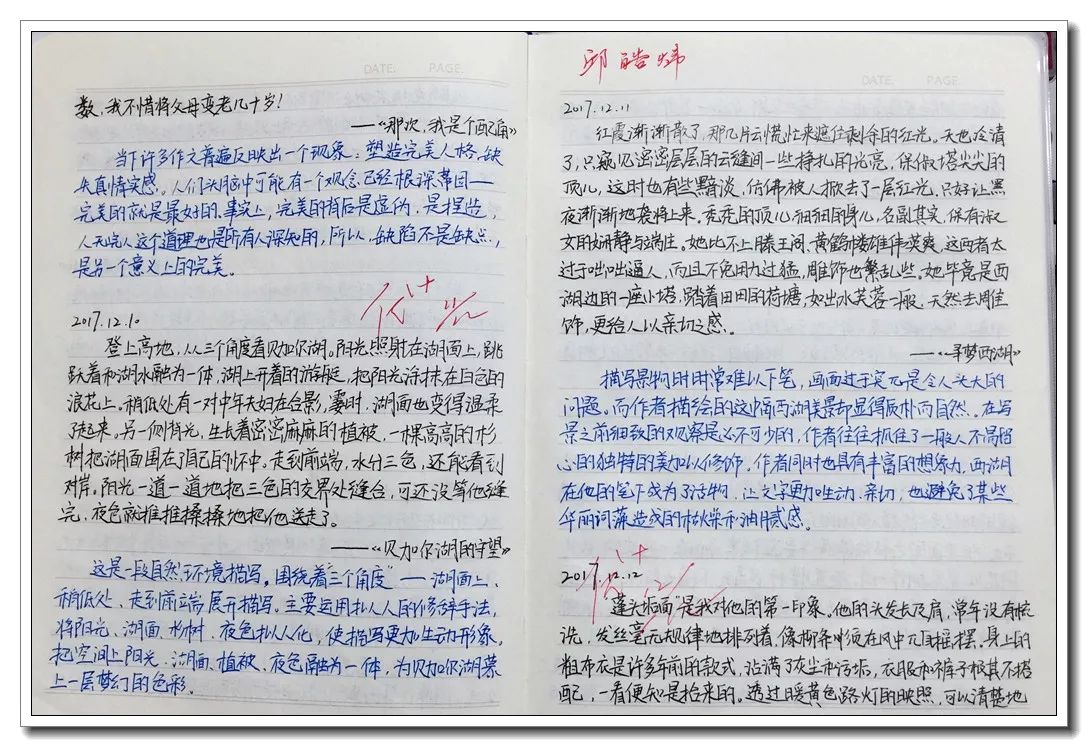 DATE. PAGE.
数,我不惜将父母变老几十岁!
——《那次,我是个配角》
当下许多作文普遍反映出一个现象:塑造完美人格,缺
失真情实感。人们头脑中可能有一个观念已经根深蒂固——
完美的就是最好的。事实上,完美的背后是虚伪,是捏造,
人无完人这个道理也是所有人深知的,所以,缺陷不是缺点,
是另一个意义上的完美。
2017.12.10
登上高地,从三个角度看贝加尔湖。阳光照射在湖面上,跳
跃着和湖水融为一体,湖上开着的游艇,把阳光涂抹在白色的
浪花上。稍低处有一对中年夫妇在合影,霎时,湖面也变得温柔
了起来。另一侧背光,生长着密密麻麻的植被,一棵高高的杉
树把湖面围在了自己的怀中。走到前端,水分三色,还能看到
对岸。阳光一道一道地把三色的交界处缝合,可还没等他缝
完,夜色就推推搡搡地把他送走了。
——《贝加尔湖的守望》
这是一段自然环境描写。围绕着“三个角度”——湖面上、
稍低处、走到前端展开描写。主要运用拟人的修辞手法,
将阳光、湖面、杉树、夜色拟人化,使描写更加生动形象,
把空间上阳光、湖面、植被、夜色融为一体,为贝加尔湖蒙
上一层梦幻的色彩。
邱皓炜
DATE. PAGE.
2017.12.11
红霞渐渐散了,那几片云慌忙来遮住剩余的红光。天也冷清
了,只窥见密密层层的云缝间一些挣扎的光亮,保俶塔尖尖的
顶儿,这时也有些黯淡,仿佛被人掀去了一层红光,只好让黑
夜渐渐地袭将上来。秃秃的顶儿,细细的身儿,名副其实,保有淑
女的娴静与端庄。她比不上滕王阁、黄鹤楼雄伟英爽,这两者太
过于咄咄逼人,而且不免用力过猛,雕饰也繁乱些。她毕竟是西
湖边的一座小塔,踏着田田的荷塘,如出水芙蓉一般,天然去雕
饰,更给人以亲切之感。
——《寻梦西湖》
描写景物时时常难以下笔,画面过于宽冗是令人头大的
问题。而作者描绘的这幅西湖美景却显得质朴而自然。在写
景之前细致的观察是必不可少的,作者往往抓住了一般人不易留
心的独特的美加以修饰。作者同时也具有丰富的想象力,西湖
在他的笔下成为了活物,让文字更加生动、亲切,也避免了某些
华丽词藻造成的枯燥和油腻感。
2017.12.12
“蓬头垢面”是我对他的第一印象。他的头发长及肩,常年没有梳
洗,发丝毫无规律地排列着,像柳条般在风中兀自摇摆。身上的
粗布衣是许多年前的款式,沾满了灰尘和污垢,衣服和裤子极其不搭
配,一看便知是拾来的。透过暖黄色路灯的映照,可以清楚地